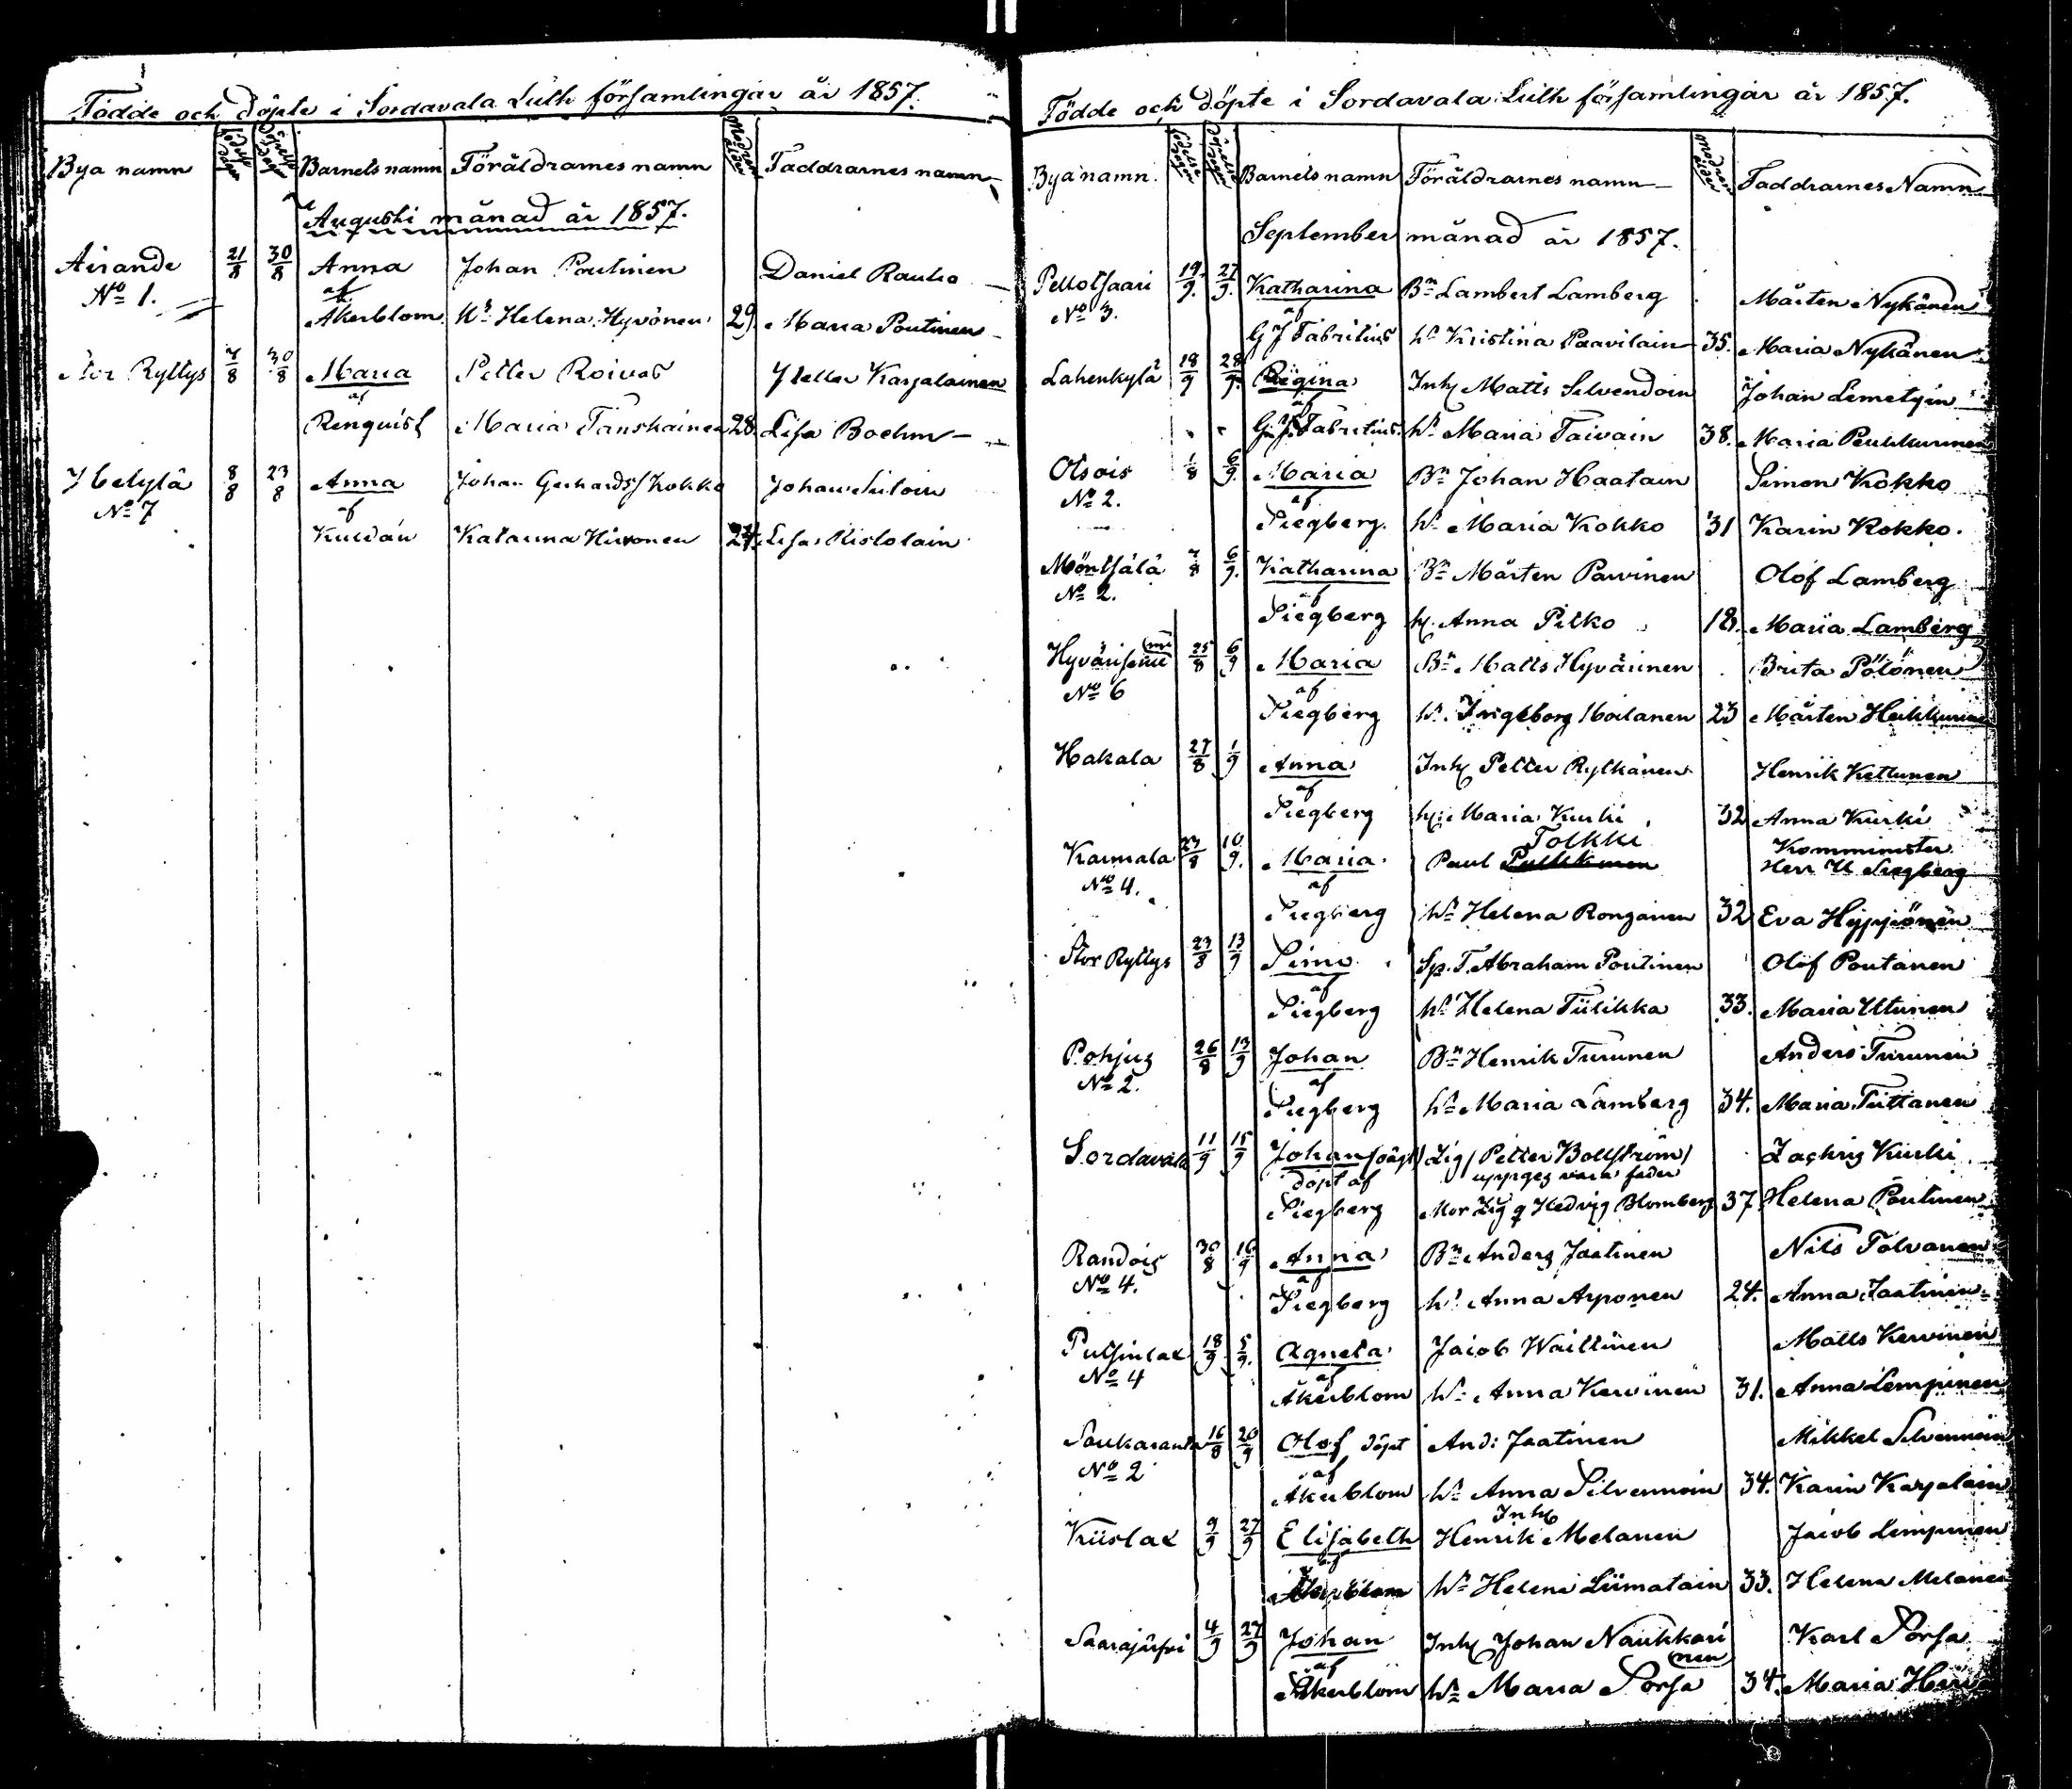 Födde och döpte i Sordavala Luth församlingar år 1857.
Bya namn Födelse dagen Döpelse dagen Barnets namn Föräldrarnes namn Modrens ålder Faddrarnes namn
Augusti månad år 1857.
Airande 21/8 30/8 Anna Johan Poutinen Daniel Rautio
No 1. af
Åkerblom. Hu Helena Hyvönen 29. Maria Poutinen
Stor Ryttys 7/8 30/8 Maria Petter Roivas Petter Karjalainen
af
Renquist Maria Tanskainen 28. Lisa Boehm
Helylä 8/8 23/8 Anna Johan Gerhards Kokko Johan Siitoin
No 7 af
Katarina Hirvonen 24. Lisa Ristolain
Födde och döpte i Sordavala Luth församlingar år 1857.
Bya namn. Födelse dagen Döpelse dagen Barnets namn Föräldrarnes namn Modrens ålder Faddrarnes Namn
September månad år 1857.
Pellotsaari 19/9. 27/9. Katharina Bn Lambert Lamberg Mårten Nykänen
No 3. af
G J Fabritius hu Kristina Paavilain 35. Maria Nykänen
Lahenkylä 18/9 28/9. Regina Inh Matts Silvendoin Johan Lemetyin
af
G. J. Fabritius. hu Maria Taivain 38. Maria Peukkurinen
Otsois 1/8 6/9. Maria Bn Johan Haatain Simon Kokko
No 2. af
Siegberg. hu Maria Kokko 31 Karin Kokko.
Möntsälä 7/8 6/9. Katharina Bn Mårten Parvinen Olof Lamberg
No 2. af
Siegberg h. Anna Pitko 18. Maria Lamberg
Maria Bn Matts Hyvärinen Brita Pölönen
25/8 6/9
No 6 af
Siegberg hu. Ingeborg Moilanen 23 Mårten Heikkurinen
Hakala 27/8 1/9 Anna Inh Petter Rytkänen Henrik Kettunen
af
Siegberg h. Maria Kurki 32 Anna Kurki
Tolkki Komminister
Karmala 23/8 10/9. Maria Paul Pulkkinen Herr U Siegberg
No 4. af
Siegberg hu Helena Ronganen 32 Eva Hyppönen
Stor Ryttys 23/8 13/9 Simo Sp. T. Abraham Poutinen Olof Poutanen
af
Siegberg hu Helena Tiilikka 33. Maria Ittunen
Pohjus 26/8 13/9 Johan Bn Henrik Turunen Anders Turunen
No 2. af
Siegberg hu Maria Lamberg 34. Maria Tiittanen
Sordavala 11/9 15/9 Johan (oägt) Lig Petter Bollström Zachris Kurki
döpt af uppges vara fader
Siegberg Mor Lig q Hedvig Blomberg 37 Helena Poutinen
Randois 30/8 16/9 Anna Bn Anders Jaatinen Nils Tolvanen
No 4. af
Siegberg hu Anna Arponen 24. Anna Jaatinen
Putsinlax 18/9 5/9. Agneta Jacob Waittinen Matts Kervinen
No 4 af
Åkerblom hu Anna Kervinen 31. Anna Lempinen
Soukaranta 16/8 20/9 Olof döpt And: Jaatinen Mikkel Silvennoin
No 2 af
Åkerblom hu Anna Silvennoin 34. Karin Karjalain
Inh
Kiislax 9/9 27/9 Elisabeth Henrik Melanen Jacob Lempinen
af
Åkerblom hu Helena Liimatain 33. Helena Melanen
Saarajärfvi 4/9 27/9 Johan Inh Johan Naukkari
nen Karl Porsa
af
Åkerblom hu Maria Porsa 34. Maria